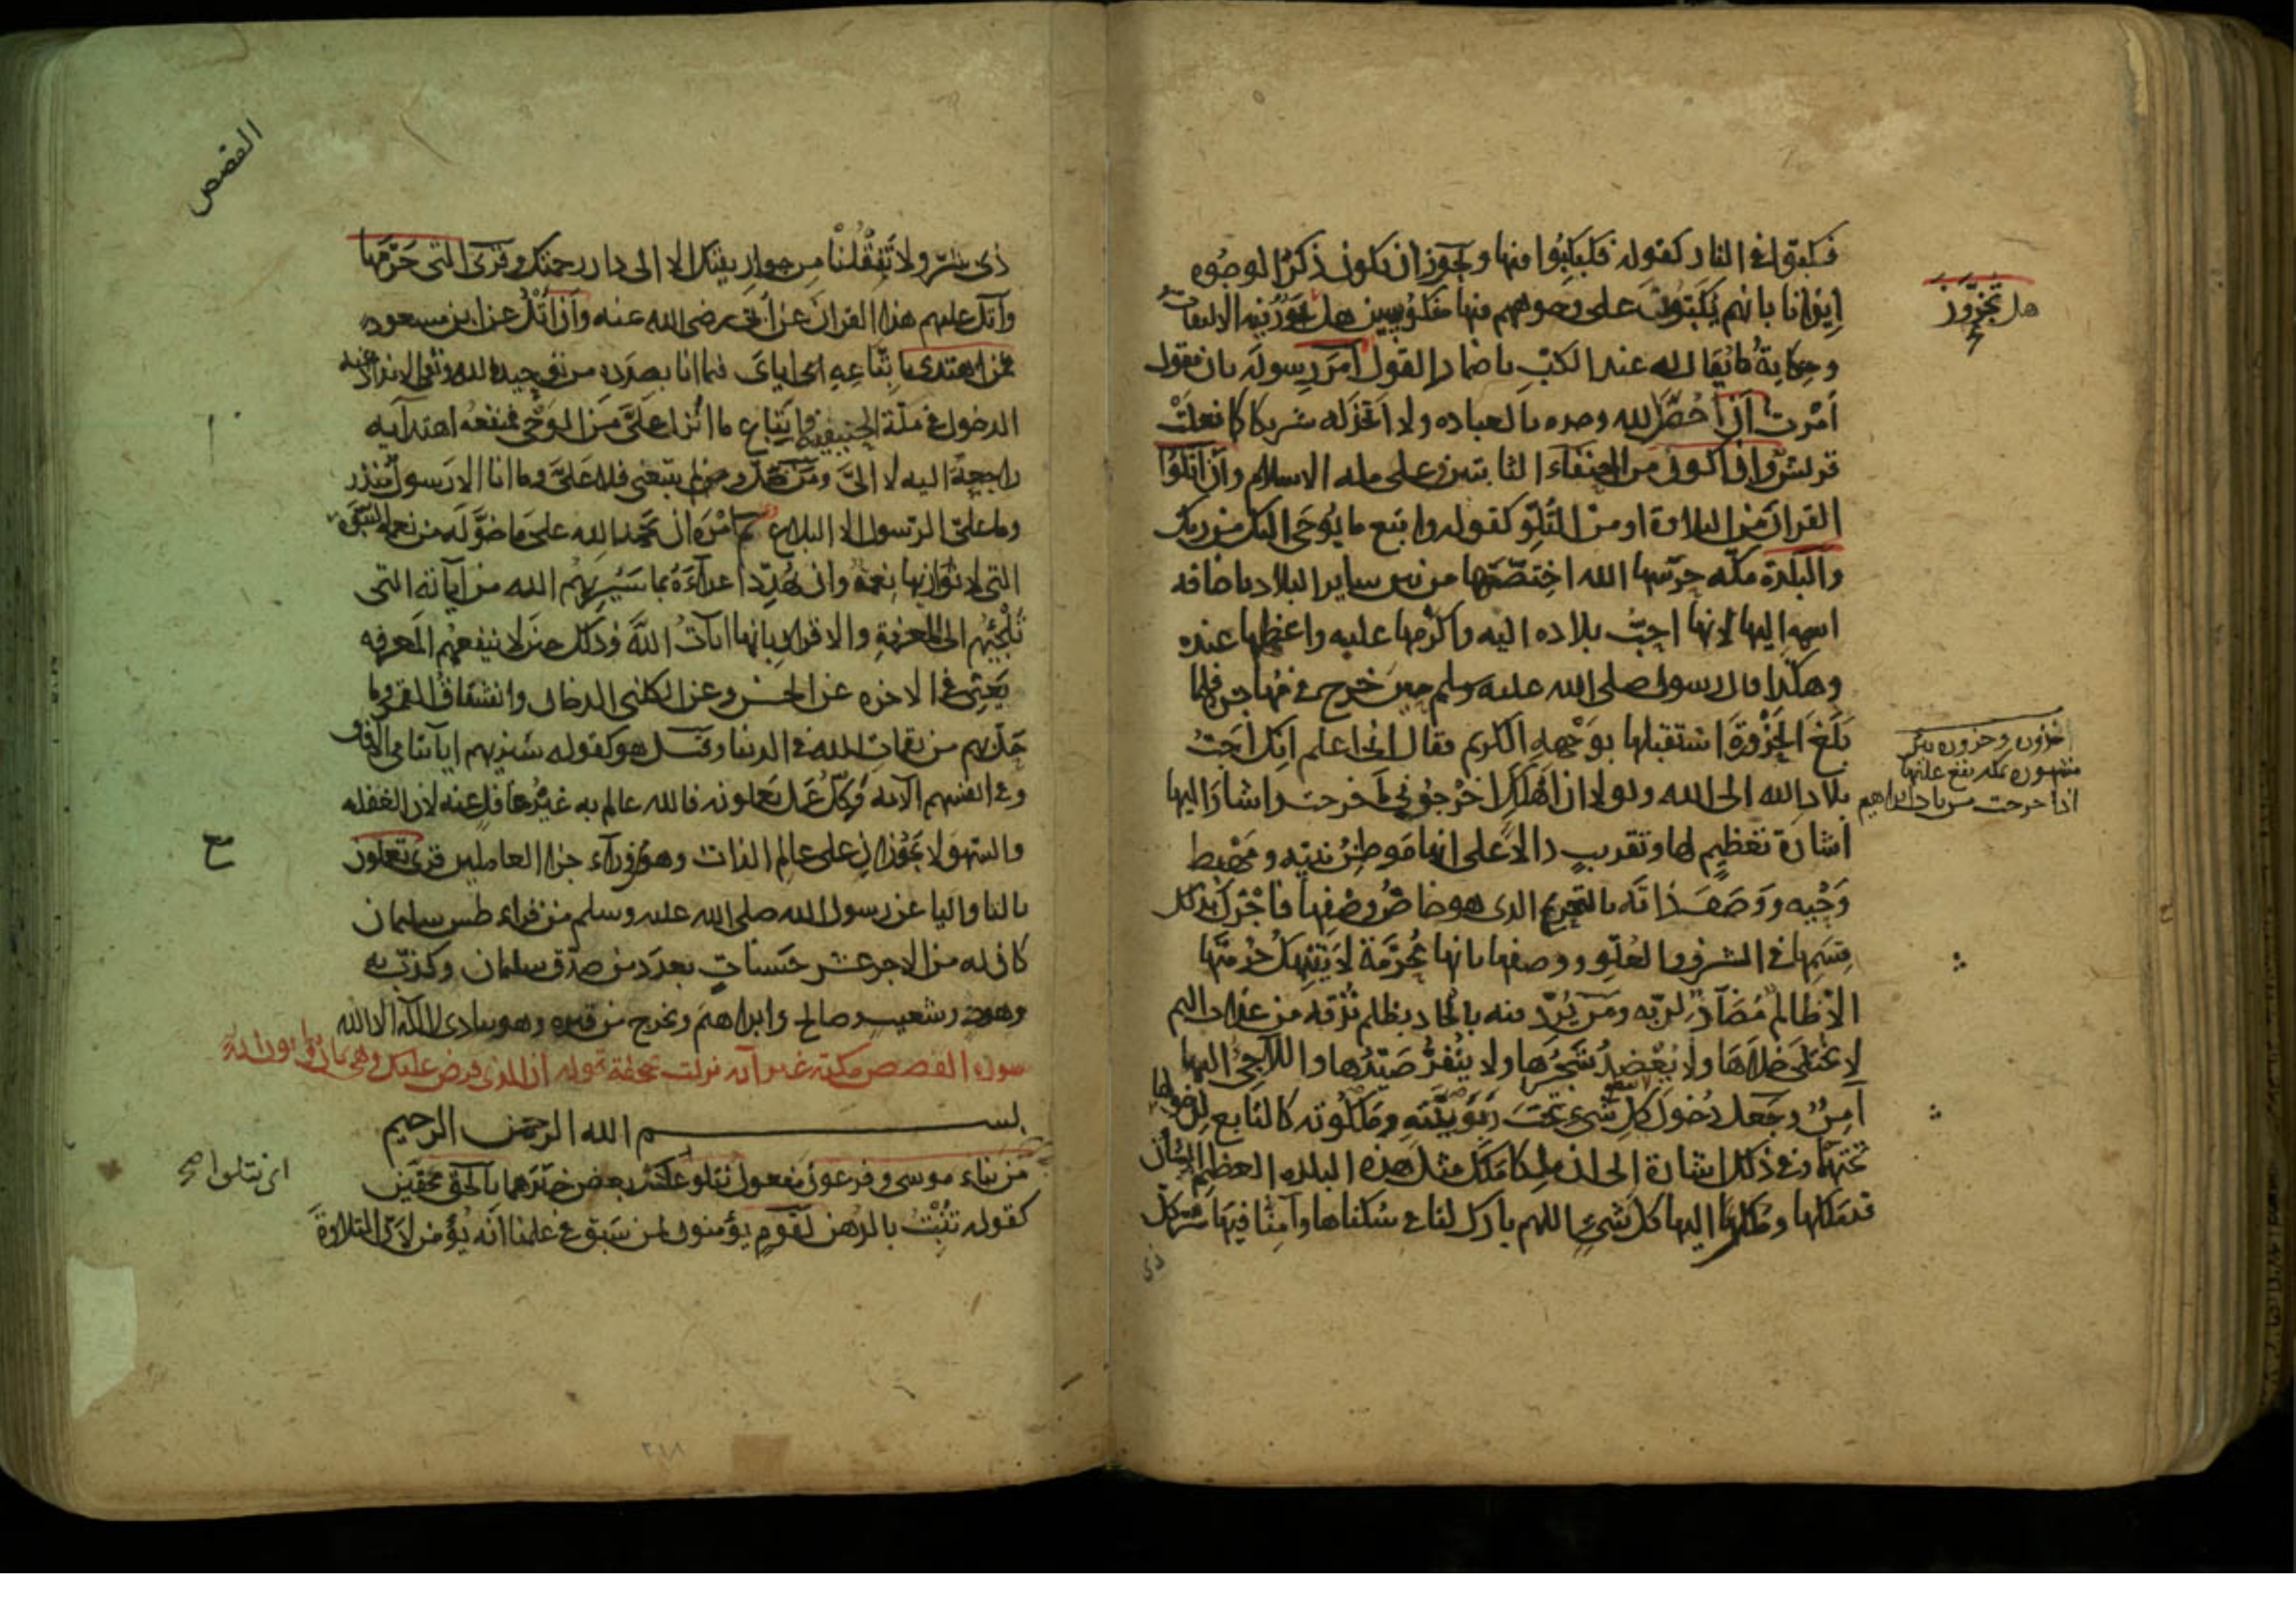 فكبّوا في النار كقوله فكبكبوا فيها ويجوز ان يكون ذكر الوجوه
ايذانا بانهم يُكَبّون على وجوههم فيها منكوسين هل تجزون فيه الالتفات
هل تُجزَوْنَ
وحكاية ما يقال لهم عند الكبّ باضمار القول امر رسوله بان يقول
اُمرت ان اخصّ الله وحده بالعباده ولا اتخذ له شريكا كما فعلت
قريش وان اكون من الحنفاء الثابتين على مله الاسلام وان اتلوا
القران من التلاوة او من التُلُوّ كقوله واتبع ما يوحى اليك من ربك
والبلدة مكّه حرّسها الله اختصّها من بين ساير البلاد باضافه
اسمه اليها لانها احبّ بلاده اليه واكرمها عليه واعظمها عنده
وهكذا قال رسول صلى الله عليه وسلم حين خرج في مهاجره فلما
بَلَغَ الحَزْوَرَةَ استقبلها بوَجْهِهِ الكريم فقال اني اعلم انك احبّ
بلاد الله الى الله ولولا ان اهلك اخرجوني ما خرجت واشار اليها
اذا خرجت من باب ابراهيم
اشارة تعظيم لها وتقريب دالا على انها موطن نبيّه ومَهْبِط
وَحْيِه ووَصَفَ ذاته بالتحريم الذي هو خاصّ وصفها فاجزل بذلك
قسمها في الشرف والعلو ووصفها بانها محرّمة لا ينتهك حرمتها
الّا ظالم مُضادّ لربّه ومن يُرِد فيه بالحاد بظلم نُذقه من عذاب اليم
لا يختلى خلاها ولا يُعْضَد شَجَرُها ولا يُنَفَّرُ صَيْدُها واللاجئ اليها
آمن وجعل دُخول كل شيء تحت ربوبيّته وملكوته كالتابع لدخولها
تحتهما وفي ذلك اشارة الى ان ملكا مَلَكَ مثل هذه البلده العظيم الشان
قد ملكها وملك اليها كل شيء اللهم بارك لنا في سكناها وآمنا فيها شرّ كل
ذي
القصص
ذى شرّ ولا تَنْقُلْنا من جوار بيتك الا الى دار رحمتك وقرئ التى حَرّمها
واتل عليهم هذا القران عن اُبَيّ رضى الله عنه وان اتْلُ عن ابن مسعود
فمن اهتدى باتّباعه اياى فيما انا بصدده من توحيد الله ونفى الانداد عنه
الدخول في ملّة الحنيفيه واتّباع ما اُنزل عَلىّ من الوَحْى فمنفعة اهتدائه
راجعةٌ اليه لا الىّ ومن ضلّ ولم يتبعنى فلا عَلَىّ وما انا الا رسول منذر
وما على الرسول الا البلاغ ثم امره ان يحمد الله على ما خوّله من نعمة النبوّة
التى لا توازيها نعمة وان يُهدّد اعداءه بما سيريهم الله من اياته التى
تُلْجِئهم الى المعرفة والاقرار بانها ايات الله وذلك حين لا ينفعهم المعرفه
يعنى في الاخره عن الحسن وعن الكلبى الدخان وانشقاق القمر وما
حلّ بهم من نقمات الله في الدنيا وقيل هو كقوله سنريهم اياتنا في الافاق
وفى انفسهم الآيه وكلّ عمل تعملونه فالله عالم به غير غافل عنه لان الغفله
والسهو لا يجوزان على عالم الذات وهو من وراء جزا العاملين قرئ تعملون
بالتا واليا عن رسول الله صلى الله عليه وسلم من قراء طس سليمان
كان له من الاجر عشر حَسَناتٍ بعدد من صدّق سليمان وكذّب به
وهود وشعيب وصالح وابراهيم ويخرج من قبره وهو ينادى لا اله الا الله
سوره القصص مكيّه غير آيه نزلت بالجحفة قوله ان الذى فرض عليك وهى ثمانٍ وثمانون آيه
بسم الله الرحمن الرحيم
من نباء موسى وفرعون مفعول نتلو اى نتلو عليك بعض خبرهما بالحق محقّين
اى نتلوا صح
كقوله تنبت بالدهن لقوم يؤمنون لمن سبق في علمنا انه يؤمن لان التلاوة
٢١٨